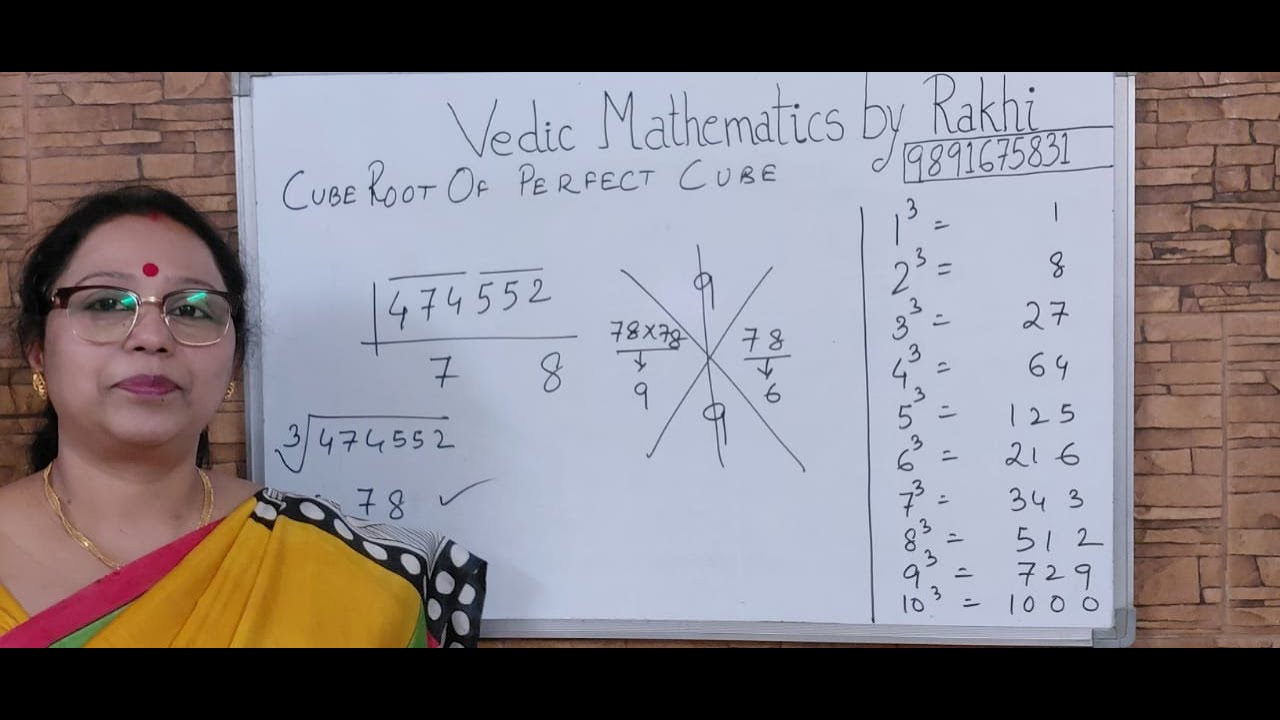 Vedic Mathematics by Rakhi
9891675831
CUBE ROOT OF PERFECT CUBE
474552
7 8
∛474552
78 ✓
9
78×78
↓
9
78
↓
6
9
1³ = 1
2³ = 8
3³ = 27
4³ = 64
5³ = 125
6³ = 216
7³ = 343
8³ = 512
9³ = 729
10³ = 1000